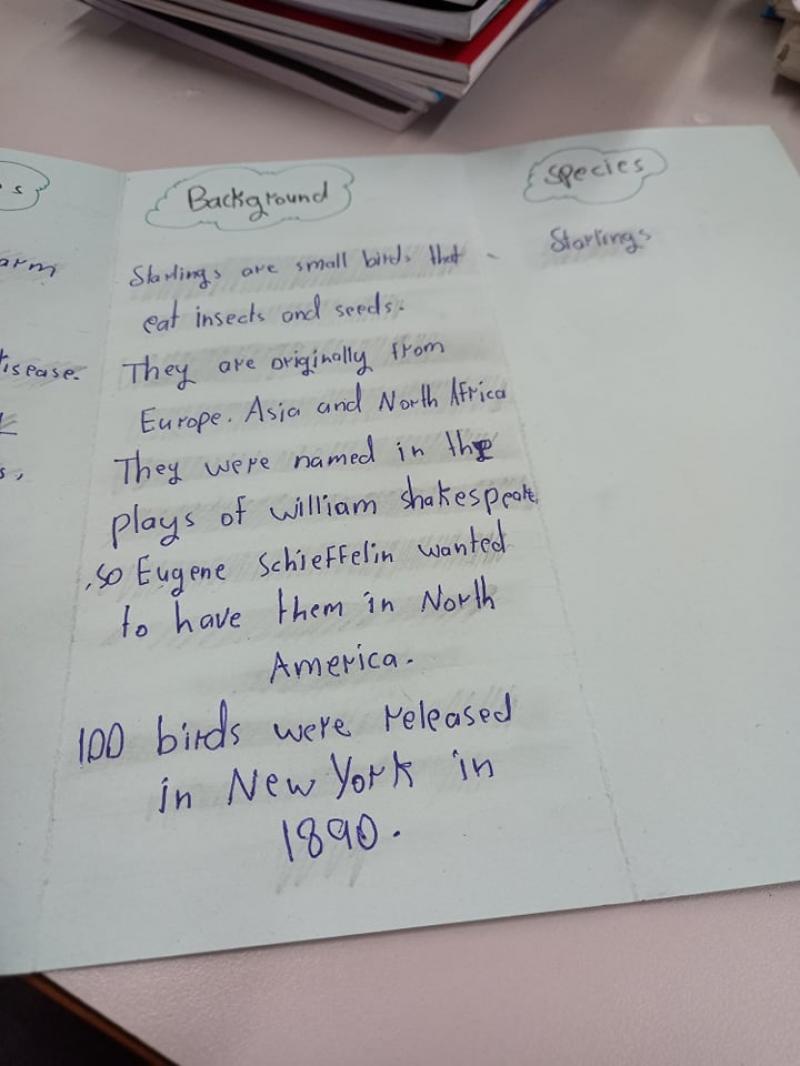 s
arm
disease.
s,
Background
Starlings are small birds that
eat insects and seeds.
They are originally from
Europe. Asia and North Africa
They were named in the
plays of william shakespeare
,so Eugene Schieffelin wanted
to have them in North
America.
100 birds were released
in New York in
1890.
Species
Starlings